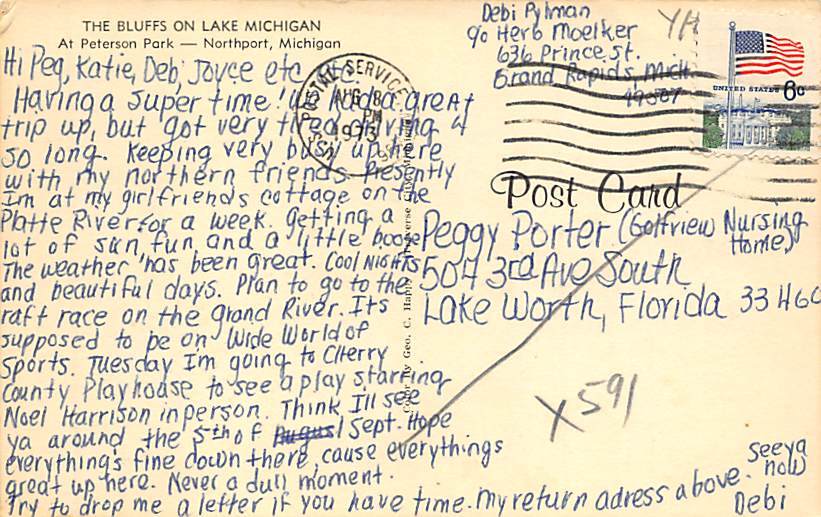 THE BLUFFS ON LAKE MICHIGAN
At Peterson Park — Northport, Michigan
Debi Pylman
c/o Herb Moelker
636 Prince St.
Grand Rapids, Mich.
YH
UNITED STATES 6c
POSTAL SERVICE
AUG 8
PM
1973
Hi Peg, Katie, Deb, Joyce etc. etc.
Having a super time! We had a great
trip up, but got very tired driving
so long. Keeping very busy up here
with my northern friends. Presently
Im at my girlfriends cottage on the
Platte River for a week. Getting a
lot of sun, fun, and a little booze.
The weather has been great. Cool Nights
and beautiful days. Plan to go to the
raft race on the Grand River. Its
supposed to be on Wide World of
Sports. Tuesday Im going to Cherry
County Playhouse to see a play starring
Noel Harrison in person. Think I'll see
ya around the 5th of August Sept. Hope
everything's fine down there, cause everythings
great up here. Never a dull moment.
Try to drop me a letter if you have time. My return adress above.
See ya
now
Debi
Post Card
Peggy Porter (Golfview Nursing
Home)
507 3rd Ave South
Lake Worth, Florida 33460
X591
Color by Geo. C.